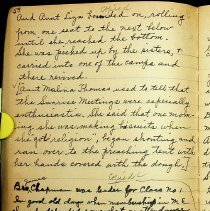 57
And Aunt Liza bounded on, rolling
from one seat to the next below
until she reached the bottom.
She was picked up by the sisters, &
carried into one of the camps and
there revived.
[Aunt Malvina Thomas used to tell that
the Sunrise Meetings were especially
enthusiastic. She said that one morn-
ing, she was making biscuits when
she got religion, began shouting and
ran over to the preaching tent with
her hands covered with the dough.]
Bro. Chapman was leader for Class No. 1
In good old days when membership in M.E.